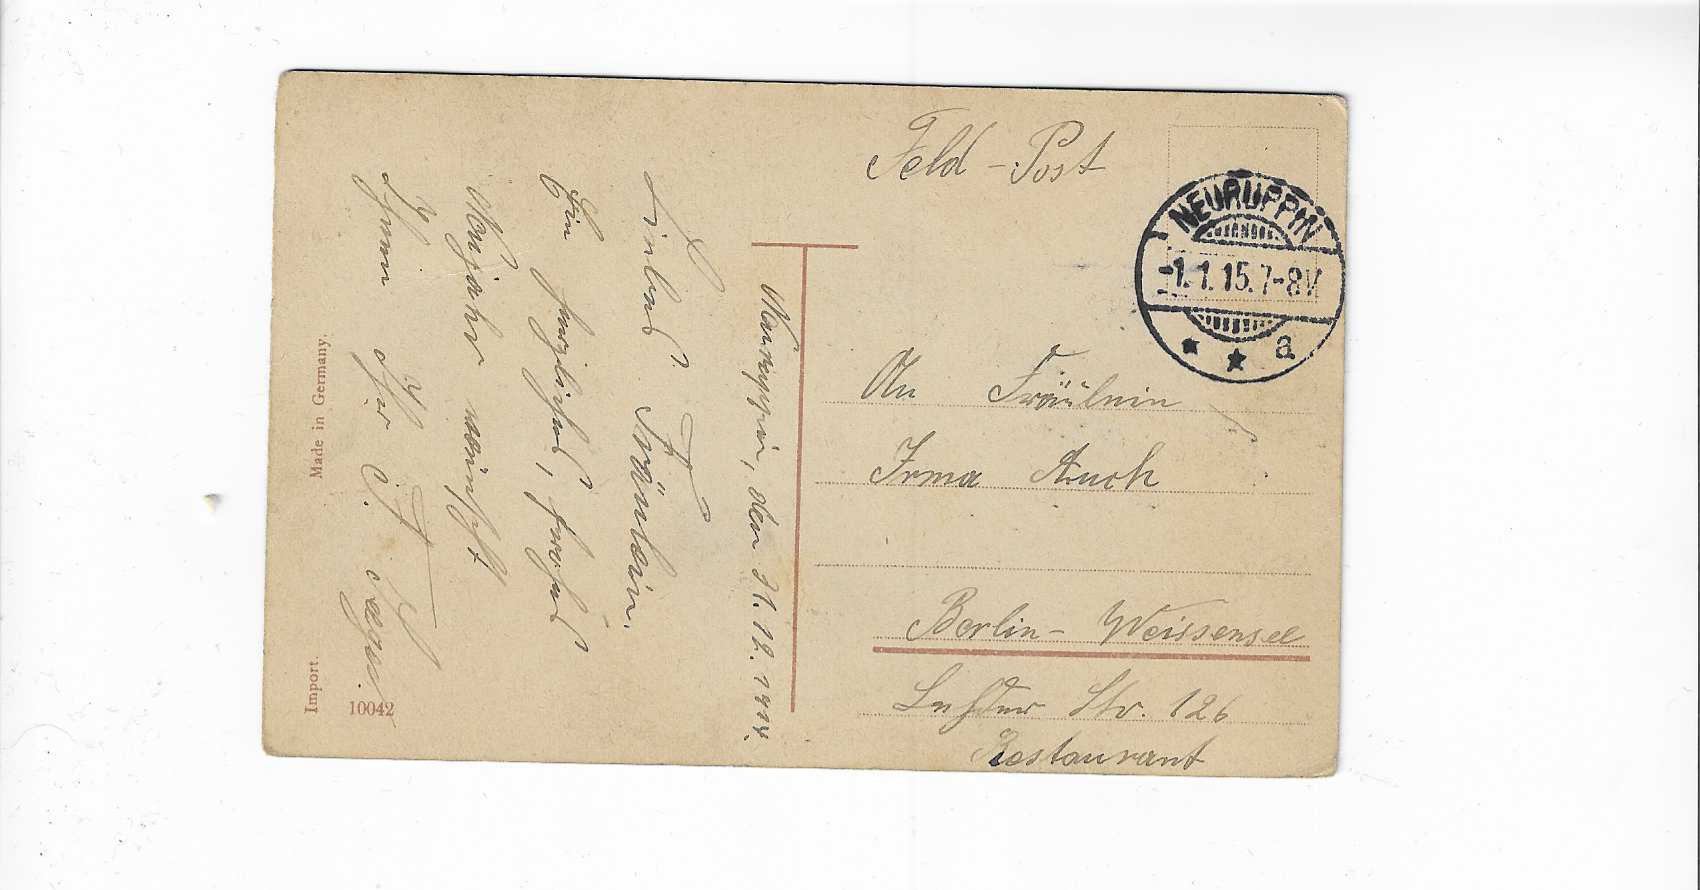 Feld-Post
NEURUPPIN
-1.1.15.7-8V.
* * a
An Fräulein
Irma Auch
Berlin-Weissensee
Str. 126
Restaurant
Neuruppin, den 31.12.1914.
Liebes Fräulein.
Ein herzliches, frohes
Neujahr wünscht
Ihnen Ihr
Made in Germany.
Import.
10042